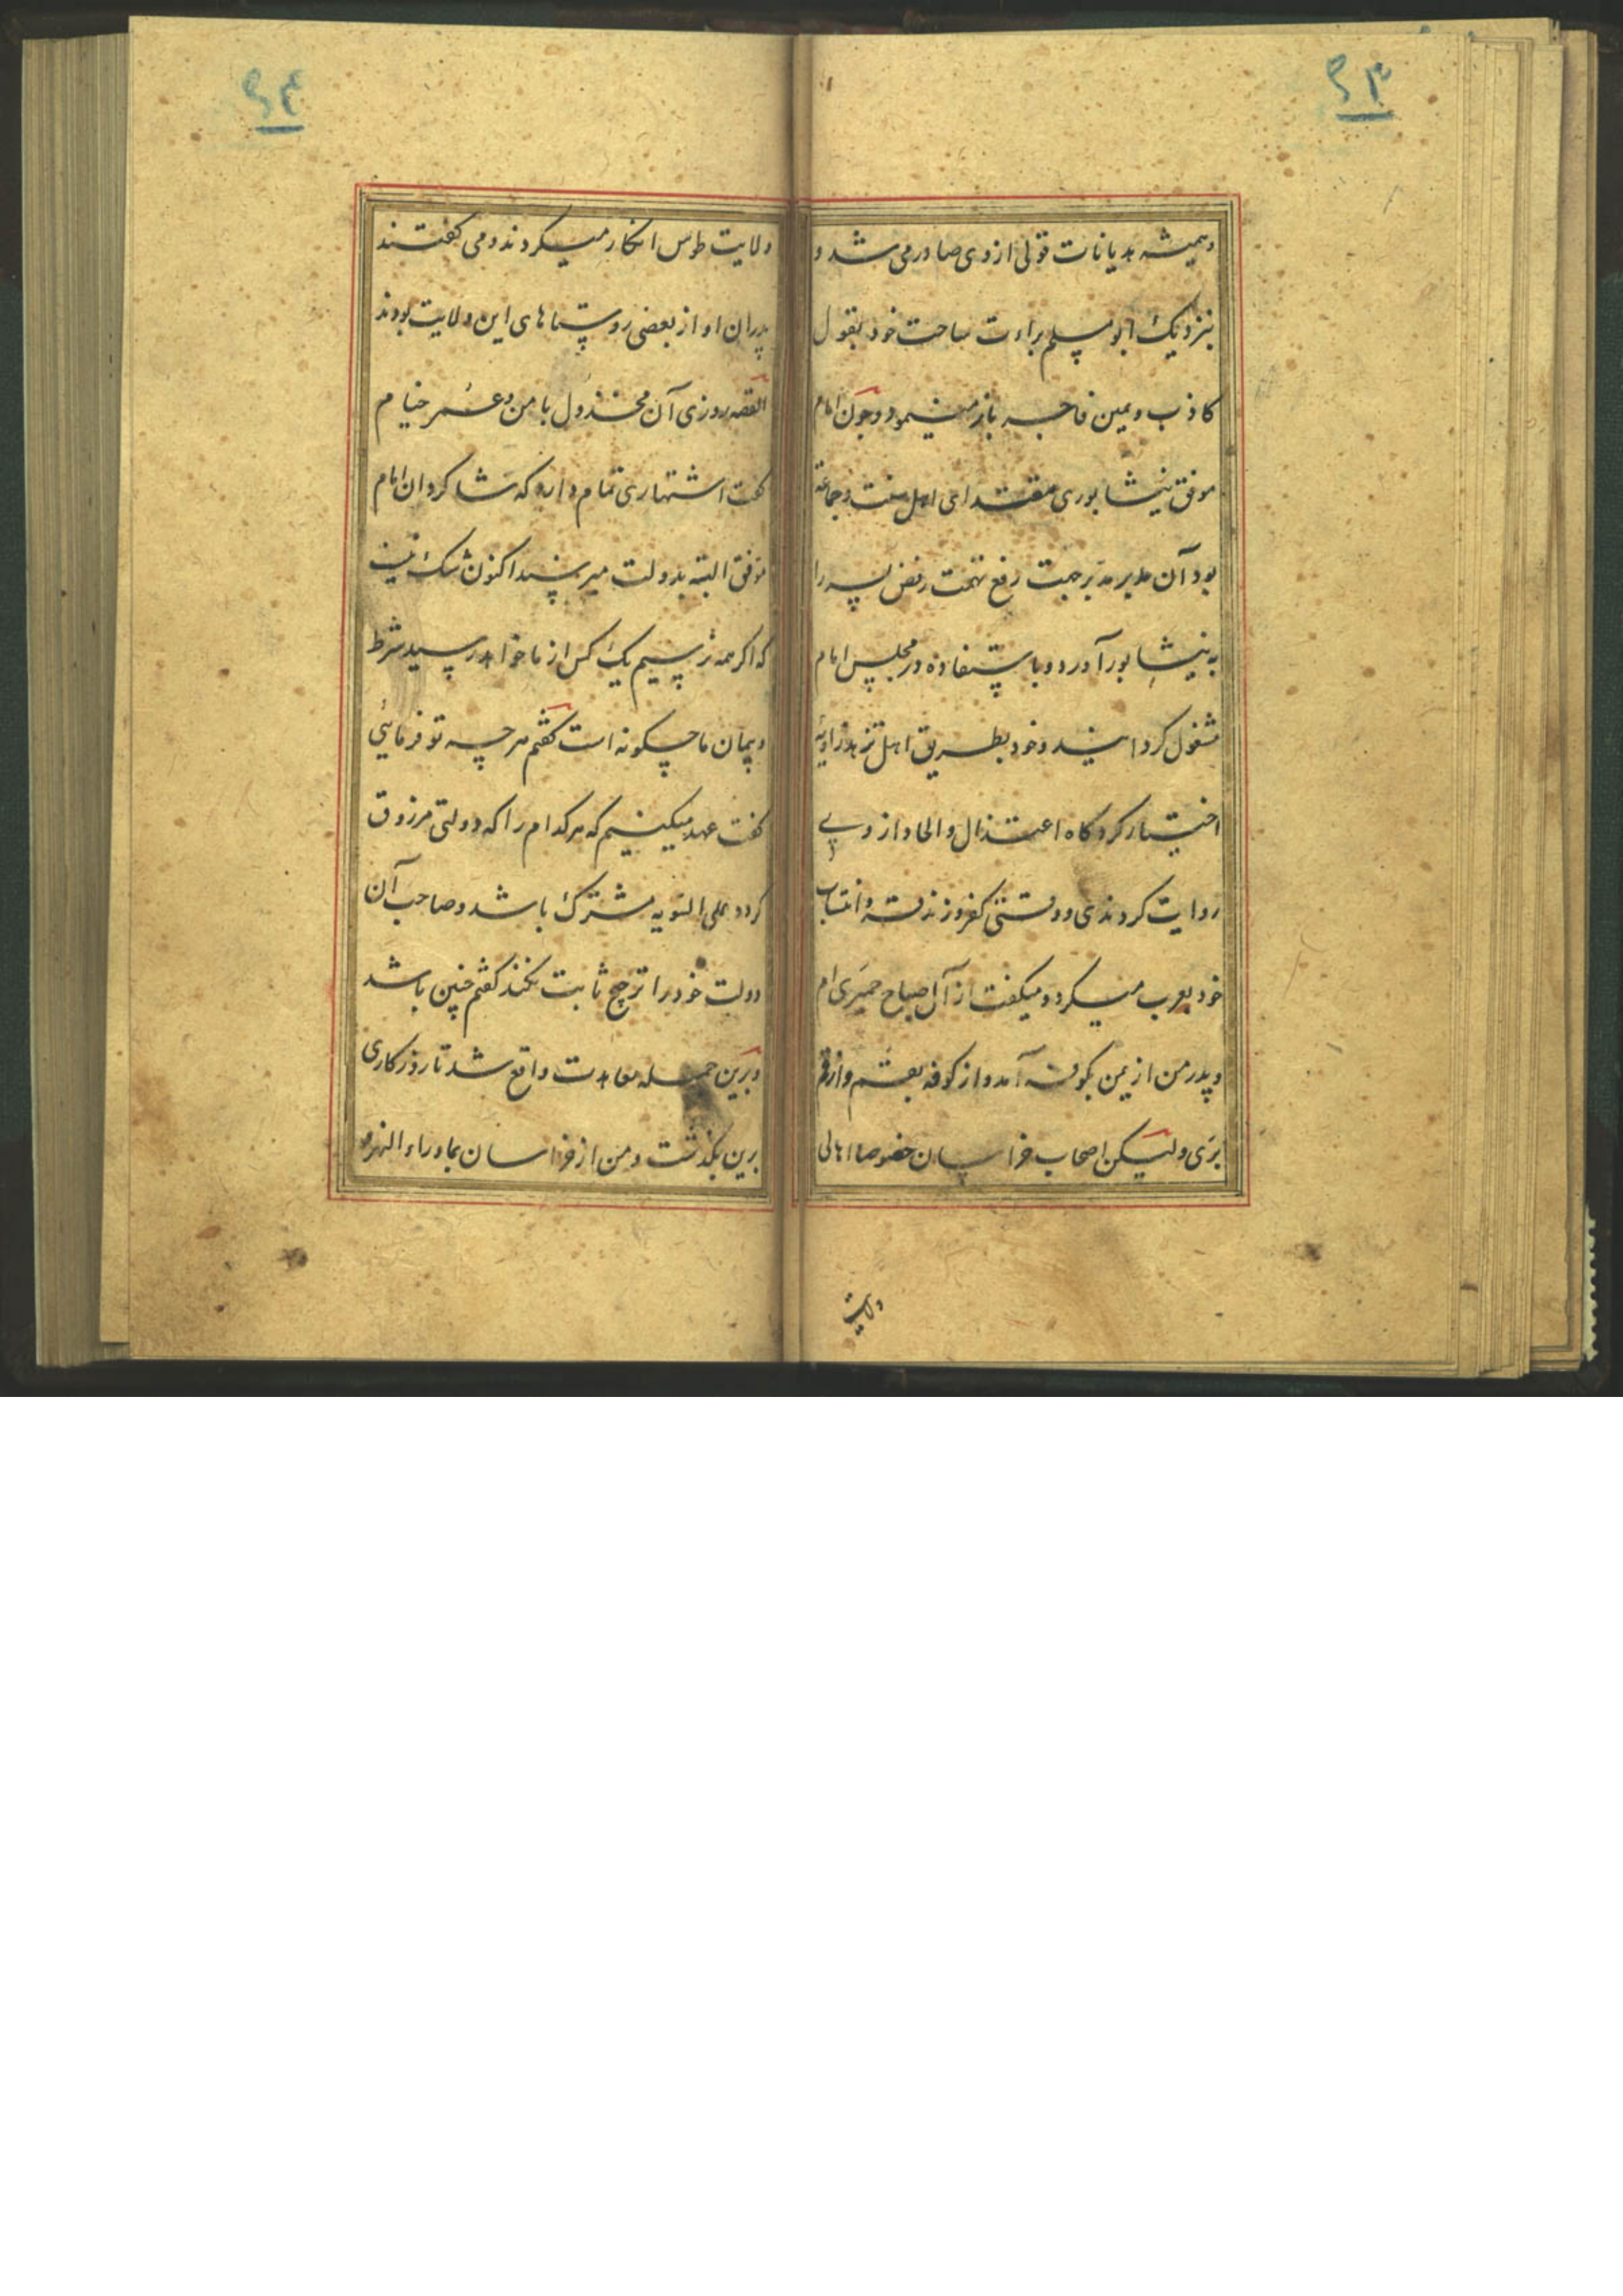 ۴۳
وهمیشه هدیانات قولی از وی صادر می شد و
بنزدیک ابو مسلم براءت ساحت خود بقول
کاذب و یمین فاجره باز مینمود و چون امام
موفق نیشابوری مقتدای اهل سنت و جماعة
بود آن مدبر مدبر جهت رفع تهمت رفض پسر را
به نیشابور آورد و باستفاده در مجلس امام
مشغول کردانید و خود بطریق اهل تزهد زاویه
اختیار کرد کاه اعتزال و الحاد از وی
روایت کردندی و وقتی کفر و زندقه و انتساب
خود بعرب میکرد و میکفت از آل صباح حمیری ام
و پدر من از یمن بکوفه آمد و از کوفه بقم و از قم
بری ولیکن اصحاب خراسان خصوصا اهالی
ولایت
۴۴
ولایت طوس انکار میکردند و می کفتند
پدران او از بعضی روستاهای این ولایت بودند
القصه روزی آن مخذول با من و عمر خیام
کفت اشتهاری تمام دارد که شاکردان امام
موفق البته بدولت میرسند اکنون شک نیست
که اکر همه نرسیم یک کس از ما خواهد رسید شرط
و پیمان ما چکونه است کفتم هر چه تو فرمائی
کفت عهد میکنیم که هر کدام را که دولتی مرزوق
کردد علی السویه مشترک باشد و صاحب آن
دولت خود را ترجیح ثابت نکند کفتم چنین باشد
و برین جمله معاهدت واقع شد تا روزکاری
برین بکذشت و من از خراسان بماوراء النهر و